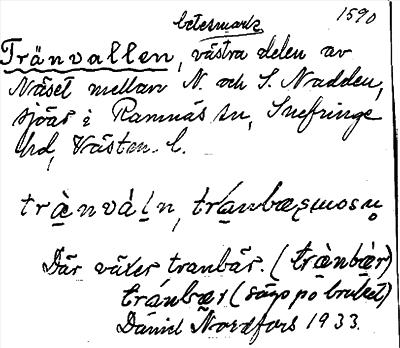 betesmark 1590
Tränvallen, västra delen av
Näset mellan N. och S. Nadden,
sjöar i Ramnäs sn, Snefringe
hd, Västm. l.
trànvàḷn, tránbæṣmosṇ
Där växer tranbär. (trànbàr)
tránbær (säges på bruket)
Daniel Nordfors 1933.